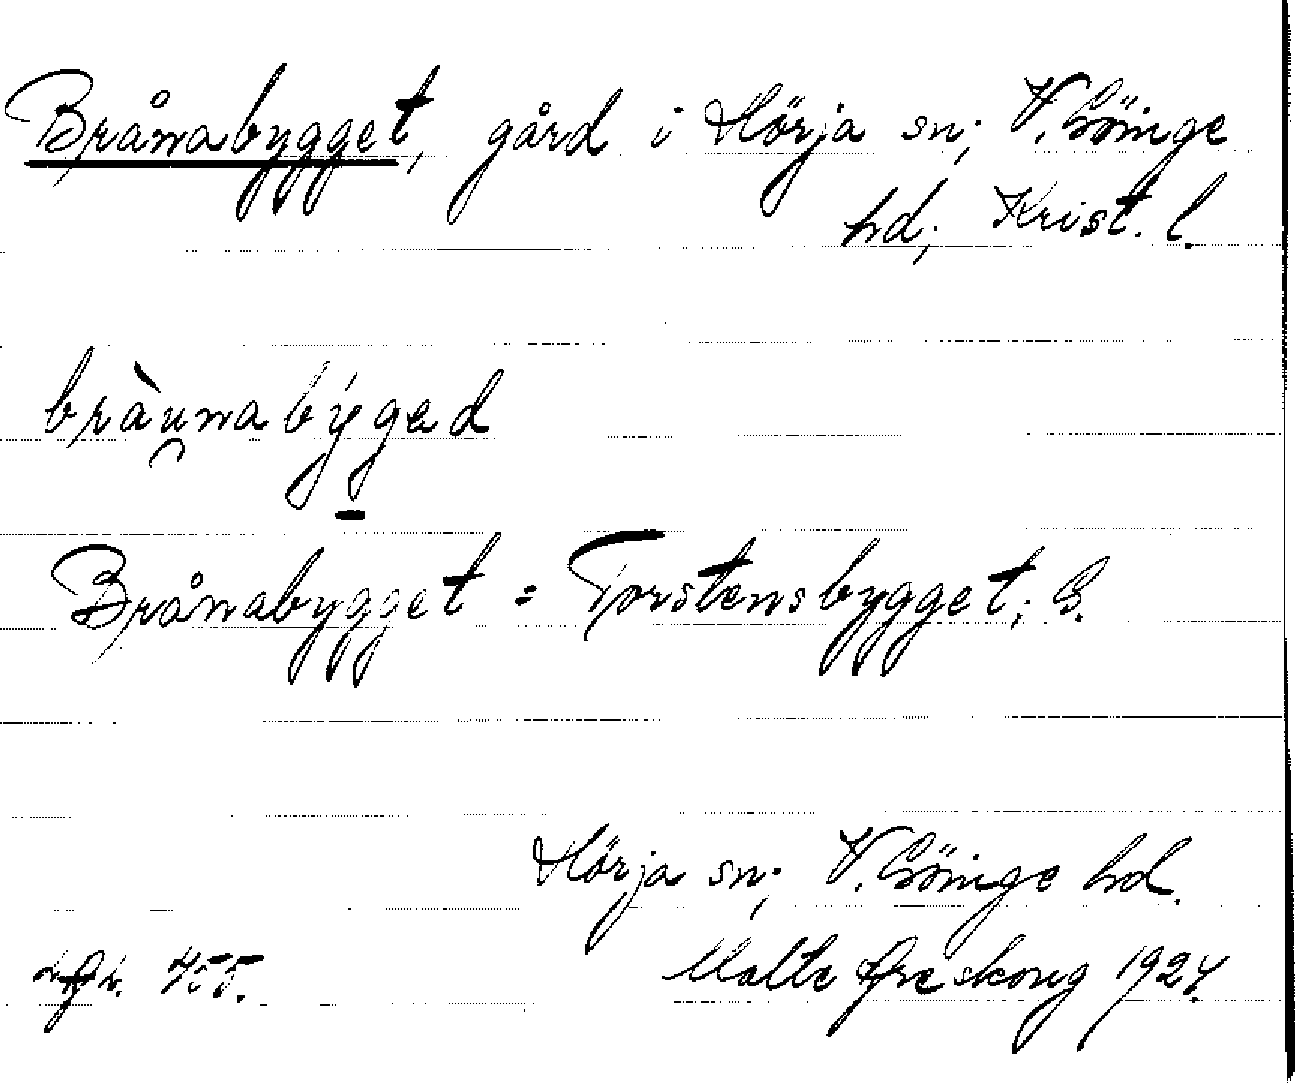 Brånabygget, gård i Hörja sn; V. Göinge
hd; Krist. l.
bràu̯nabýged
Brånabygget = Torstensbygget; G.
Hörja sn; V. Göinge hd.
455. Malte Areskoug 1924.